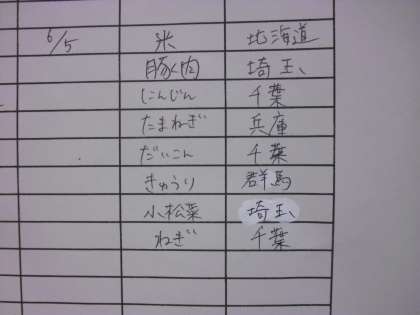 6/5 米 北海道
豚肉 埼玉
にんじん 千葉
たまねぎ 兵庫
だいこん 千葉
きゅうり 群馬
小松菜 埼玉
ねぎ 千葉